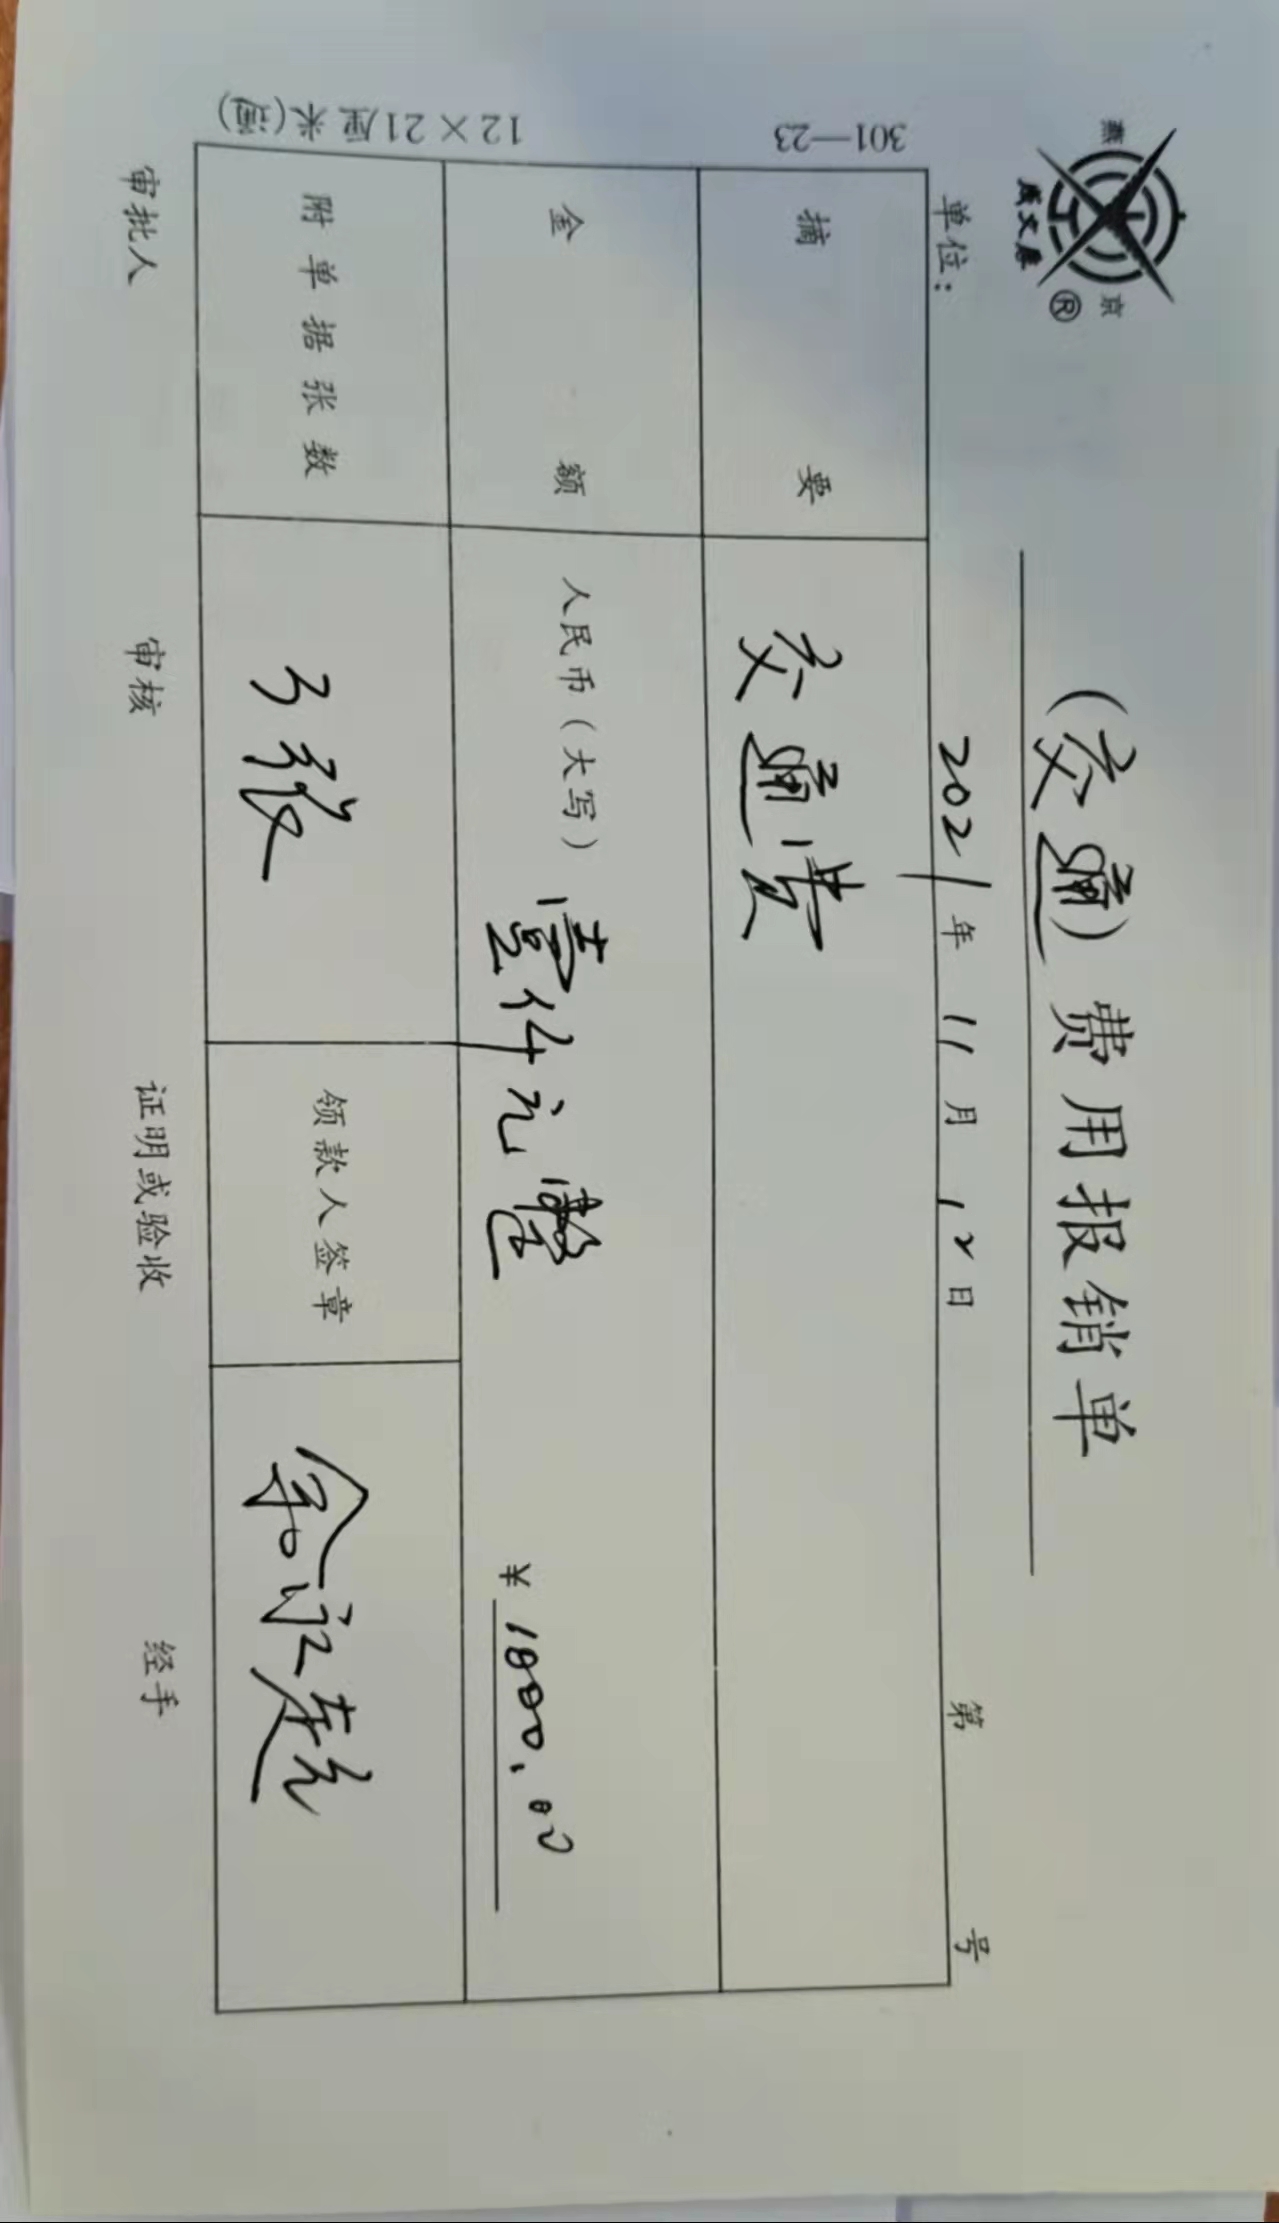 燕京
成文厚
®
(交通)费用报销单
单位：
2021年11月12日
第 号
摘要 交通费
金额 人民币（大写） 壹仟元整 ¥1000.00
附单据张数 3张 领款人签章 余永超
审批人 审核 证明或验收 经手
301—23
12×21厘米(通)